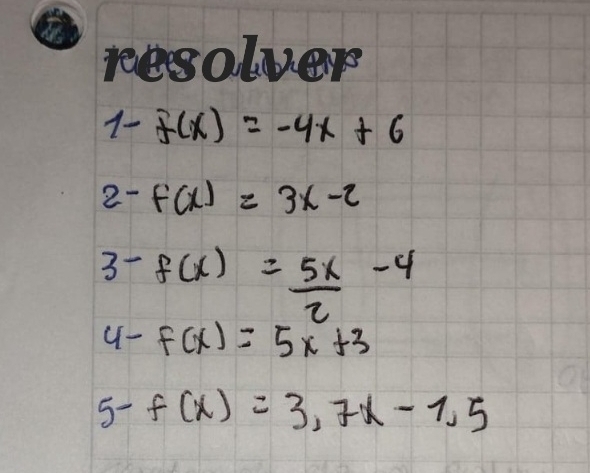 resolver
1- f(x) = -4x + 6
2- f(x) = 3x - 2
3- f(x) = 5x/2 - 4
4- f(x) = 5x + 3
5- f(x) = 3,7x - 1,5